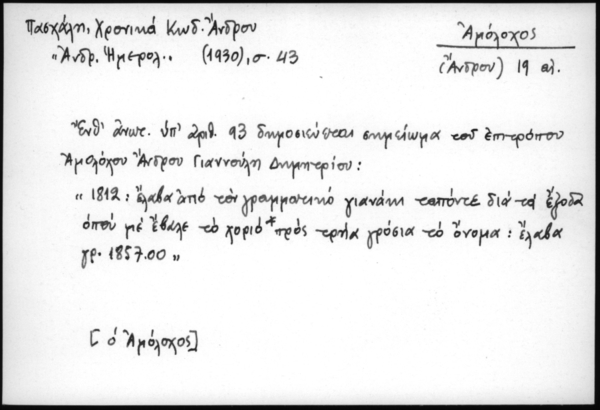 Πασχάλη, Χρονικά Κωδ. Ἄνδρου
Ἀμόλοχος
"Ἀνδρ. Ἡμερολ.." (1930), σ. 43
(Ἄνδρου) 19 αἰ.
Ἔνθ' ἀνωτ. ὑπ' ἀριθ. 93 δημοσιεύεται σημείωμα τοῦ ἐπιτρόπου
Ἀμολόχου Ἄνδρου Γιαννούλη Δημητρίου:
" 1812: ἔλαβα ἀπό τόν γραμματικό γιανάκη διά τά ἔξοδα
ὁπού μέ ἔβαλε τό χοριό* πρός τρηία γρόσια τό ὄνομα: ἔλαβα
γρ. 1857.00 "
[ὁ Ἀμόλοχος]